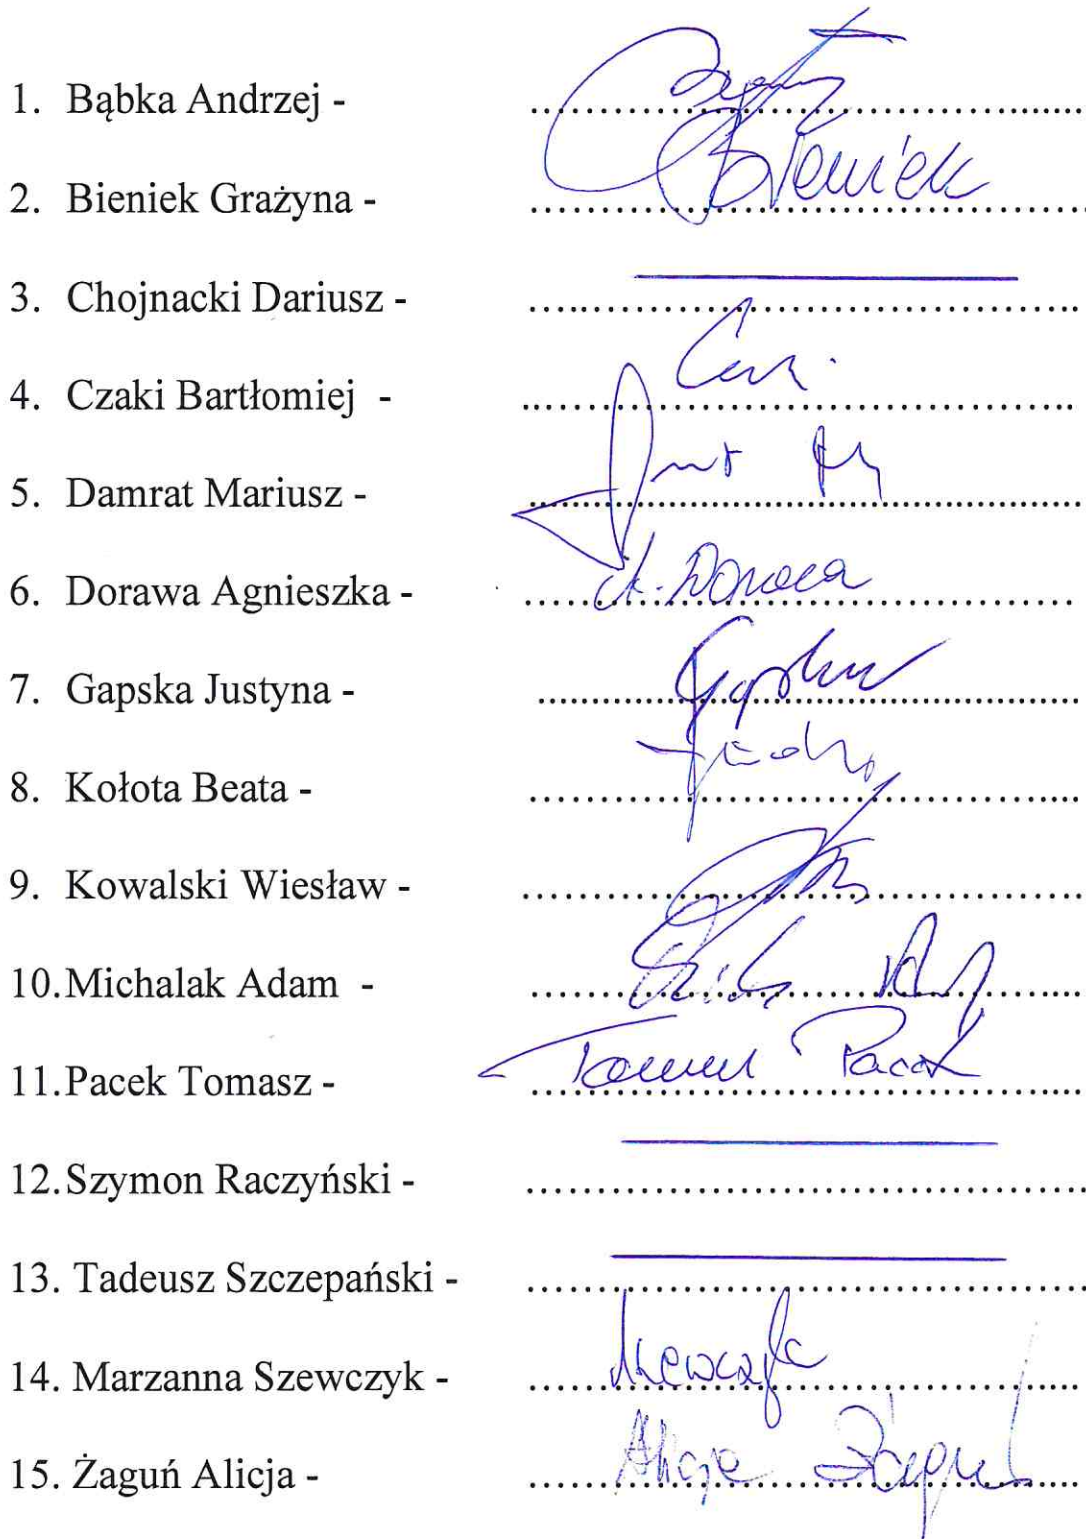 1. Bąbka Andrzej - ....................
2. Bieniek Grażyna - .................... Bieniek
3. Chojnacki Dariusz - ....................
4. Czaki Bartłomiej - ....................
5. Damrat Mariusz - ....................
6. Dorawa Agnieszka - .................... A. Dorawa
7. Gapska Justyna - .................... Gapska
8. Kołota Beata - ....................
9. Kowalski Wiesław - ....................
10. Michalak Adam - ....................
11. Pacek Tomasz - .................... Tomasz Pacek
12. Szymon Raczyński - ....................
13. Tadeusz Szczepański - ....................
14. Marzanna Szewczyk - .................... Szewczyk
15. Żaguń Alicja - .................... Alicja Żaguń